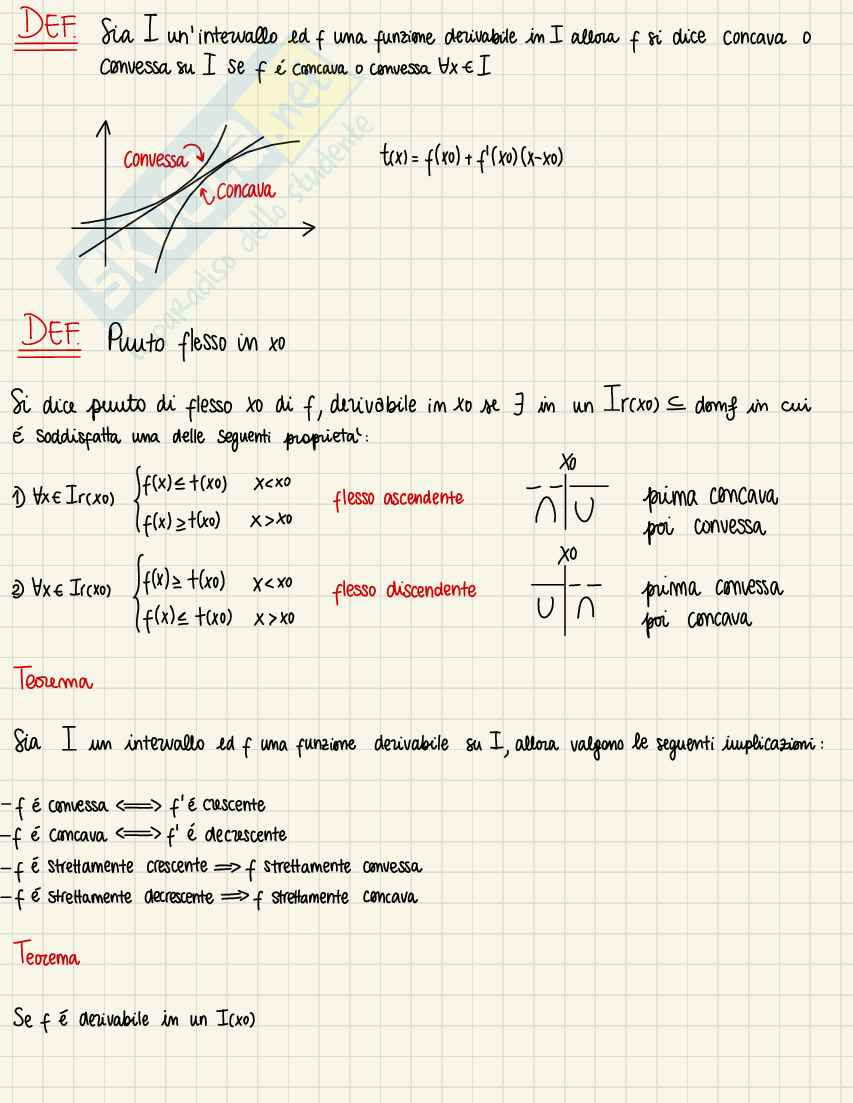 DEF. Sia I un'intervallo ed f una funzione derivabile in I allora f si dice concava o
convessa su I se f é concava o convessa ∀x ∈ I
convessa
concava
t(x) = f(x0) + f'(x0)(x-x0)
SKUOLA.net
il paradiso dello studente
DEF. Punto flesso in x0
Si dice punto di flesso x0 di f, derivabile in x0 se ∃ in un Ir(x0) ⊆ domf in cui
é soddisfatta una delle seguenti proprieta':
1) ∀x ∈ Ir(x0) { f(x) ≤ t(x0) x<x0
f(x) ≥ t(x0) x>x0
flesso ascendente
x0
prima concava
poi convessa
2) ∀x ∈ Ir(x0) { f(x) ≥ t(x0) x<x0
f(x) ≤ t(x0) x>x0
flesso discendente
x0
prima convessa
poi concava
Teorema
Sia I un intervallo ed f una funzione derivabile su I, allora valgono le seguenti implicazioni:
- f é convessa ⟺ f' é crescente
- f é concava ⟺ f' é decrescente
- f é strettamente crescente ⟹ f strettamente convessa
- f é strettamente decrescente ⟹ f strettamente concava
Teorema
Se f é derivabile in un I(x0)